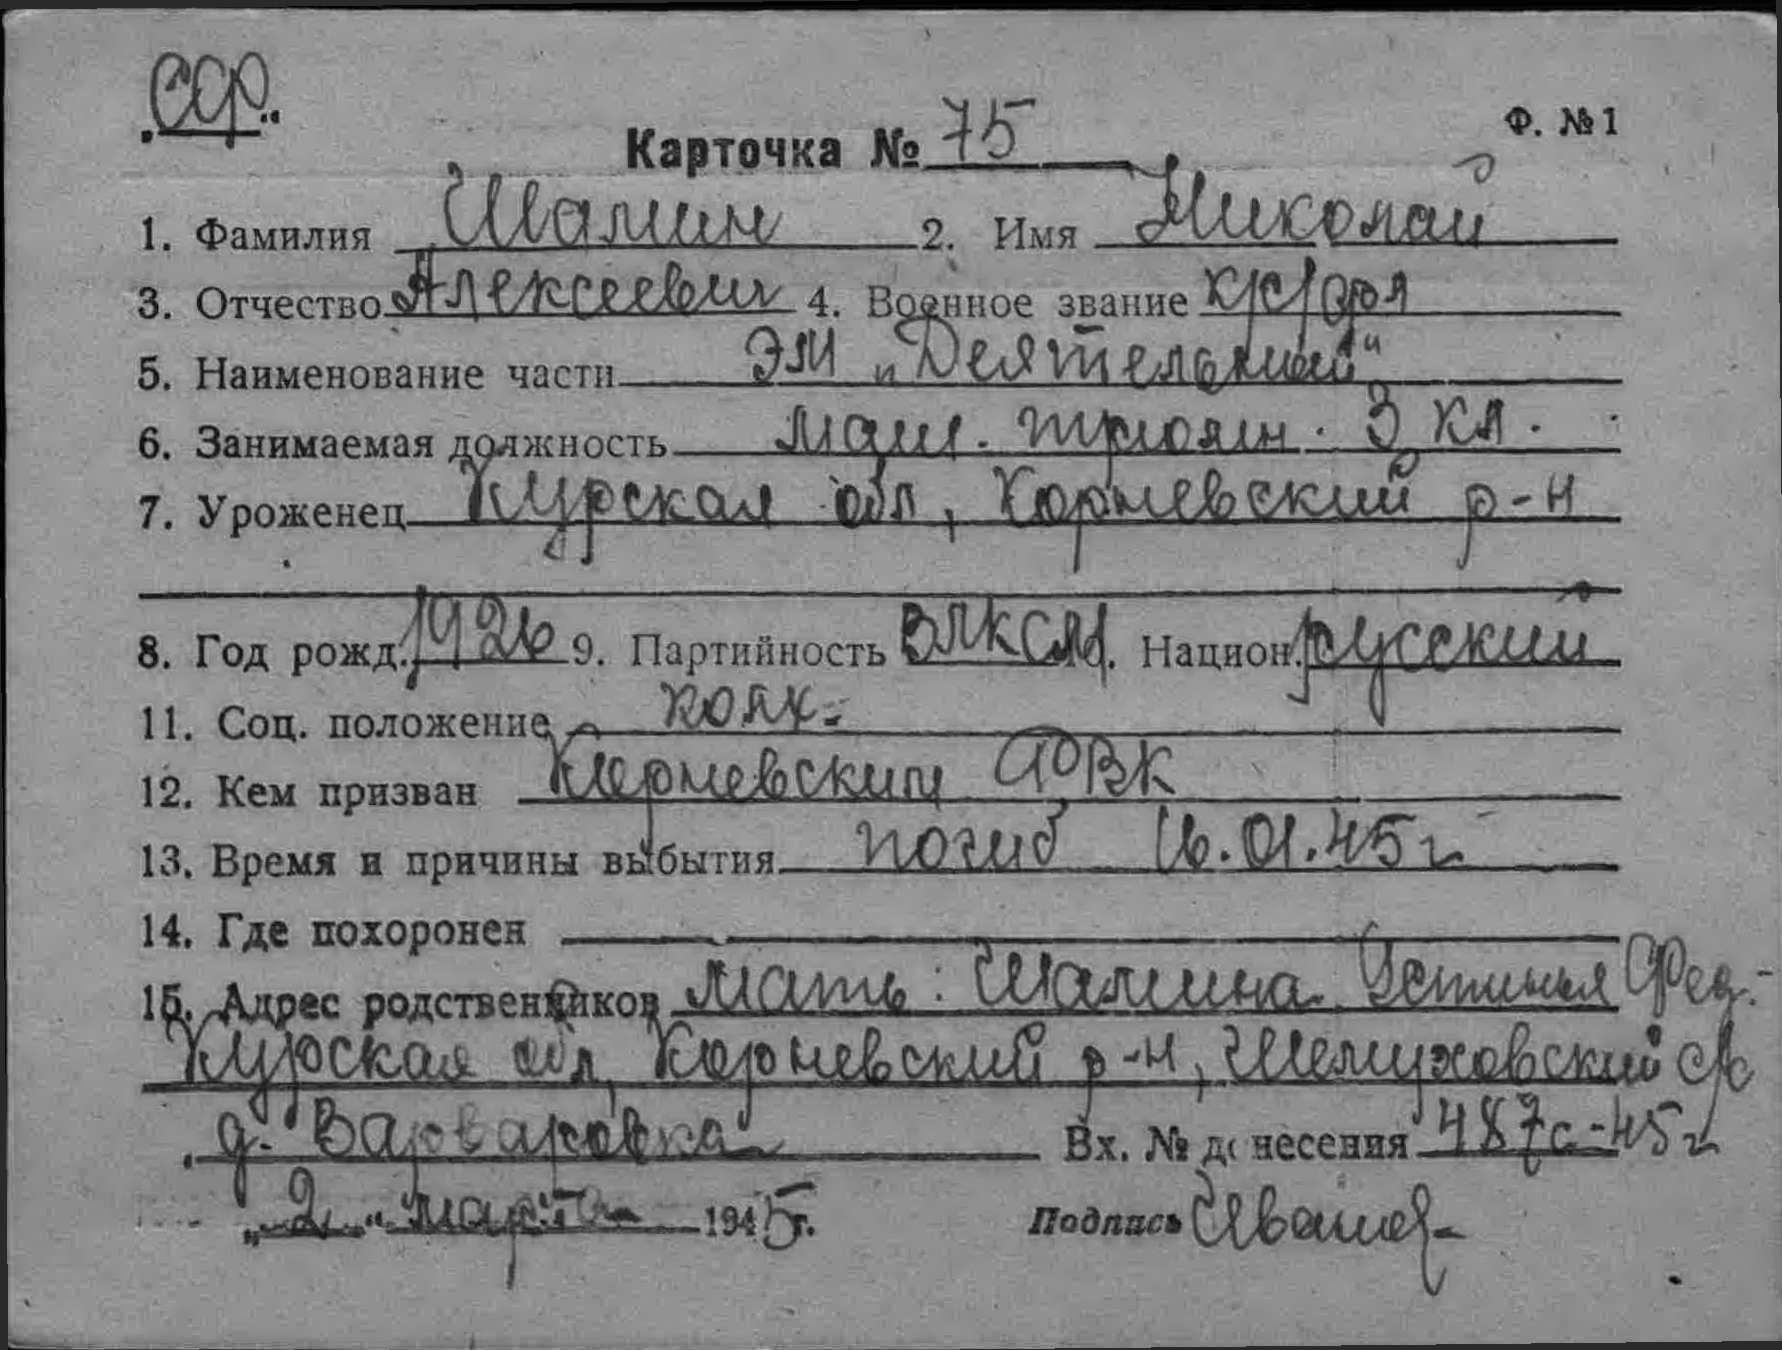 ССР.
Карточка № 75 Ф. №1
1. Фамилия Шамин 2. Имя Николай
3. Отчество Алексеевич 4. Военное звание кр/фл
5. Наименование части ЭМ "Деятельный"
6. Занимаемая должность маш. трюмн. 3 кл.
7. Уроженец Курская обл, Кореневский р-н
8. Год рожд. 1926 9. Партийность ВЛКСМ. Национ. русский
11. Соц. положение колх.
12. Кем призван Кореневским РВК
13. Время и причины выбытия погиб 16.01.45 г
14. Где похоронен
15. Адрес родственников Мать: Шамина Устинья Фед.-
Курская обл, Кореневский р-н, Шелуховский с/с
д. Варваровка Вх. № донесения 487с-45 г
"2" марта 1945 г. Подпись